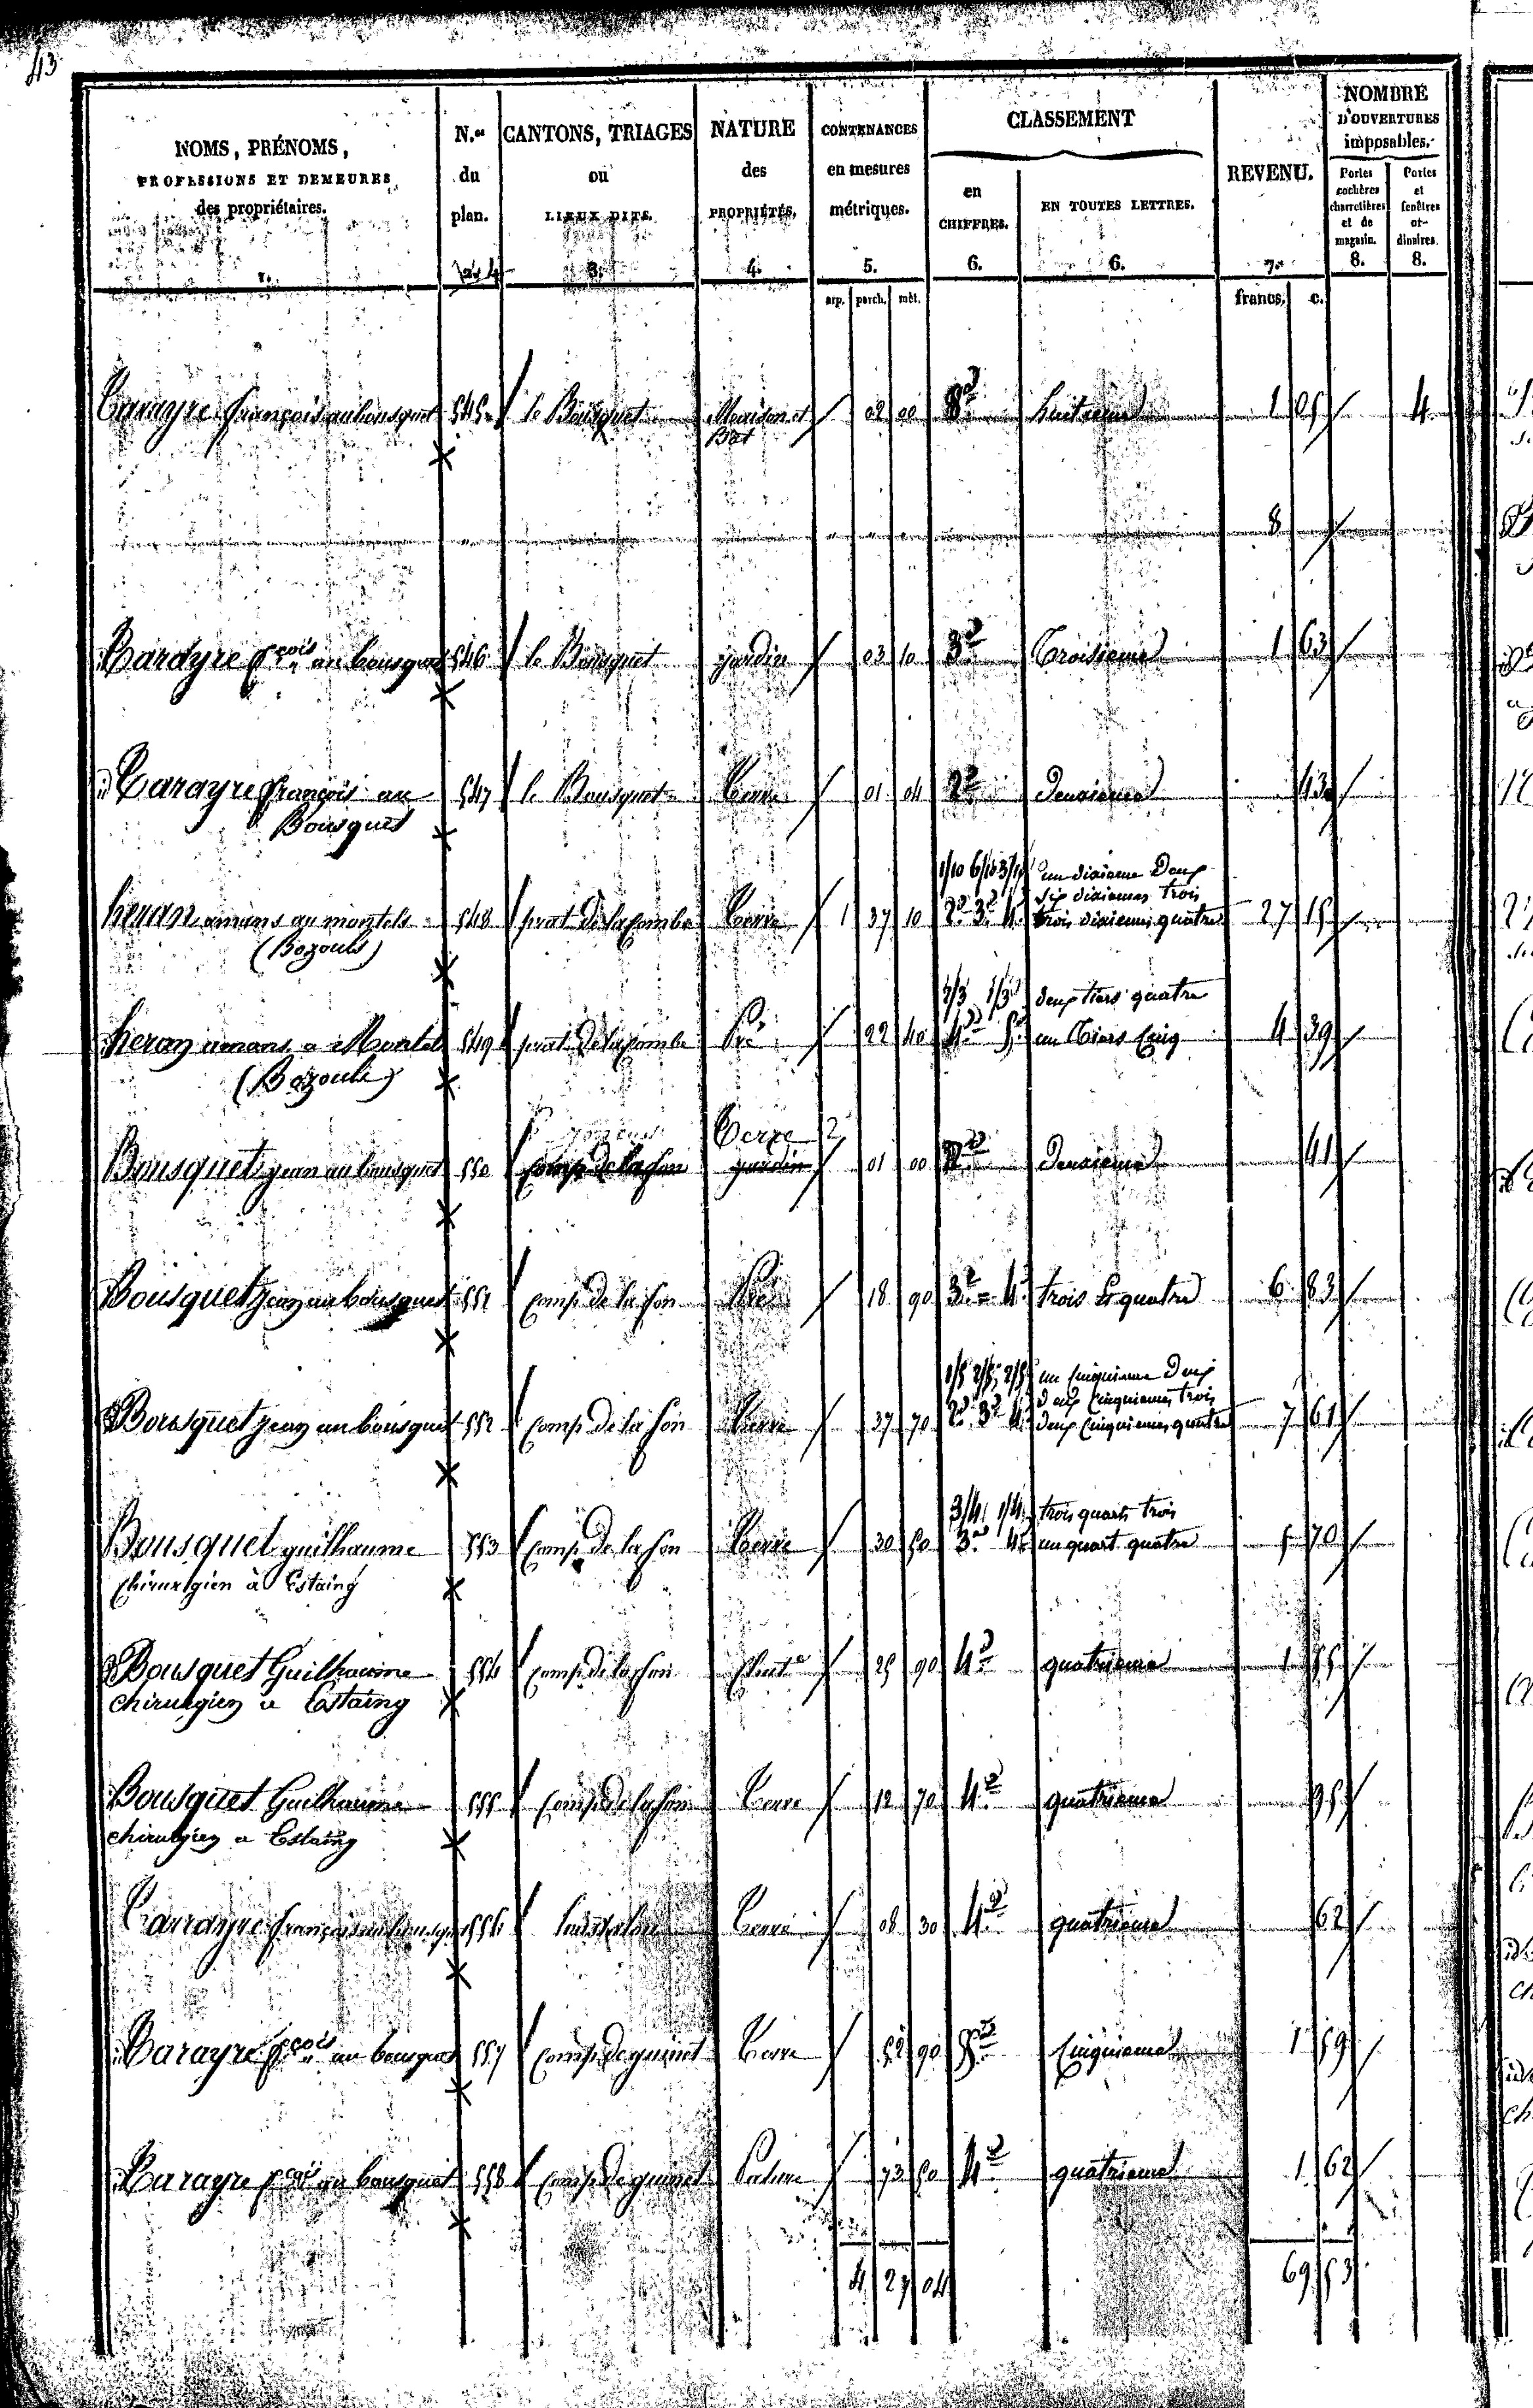 43
NOMS, PRÉNOMS, PROFESSIONS ET DEMEURES des propriétaires. 1.
N.os du plan.
CANTONS, TRIAGES ou LIEUX DITS. 3.
NATURE des PROPRIÉTÉS. 4.
CONTENANCES en mesures métriques. 5.
CLASSEMENT
en CHIFFRES. 6.
EN TOUTES LETTRES. 6.
REVENU. 7.
NOMBRE D'OUVERTURES imposables.
Portes cochères charretières et de magasin. 8.
Portes et fenêtres ordinaires. 8.
arp. perch. mèt.
francs, c.
Carayre françois au bousquet 545 le Bousquet Maison et 02 00 8e huitieme 1 05 4
Bat
8
Carayre fçois au bousquet 546 le Bousquet jardin 03 10 3e Troisieme 1 63
Carayre françois au 547 le Bousquet Terre 01 04 2e Deuxieme 43
Bousquet
1/10 6/10 3/10 un dixieme Deux
six dixiemes trois
heran amans au montels 548 prat de la combe Terre 1 37 10 2e 3e 4e trois dixiemes quatre 27 15
(Bozouls)
2/3 1/3 deux tiers quatre
heran amans a Montels 549 prat de la combe Pré 22 40 4e 5e un tiers cinq 4 39
(Bozouls)
Terre
Bousquet jean au bousquet 550 camp de la fon jardin 01 00 2e Deuxieme 41
Bousquet jean au bousquet 551 camp de la fon Pré 18 90 3e = 4e trois & quatre 6 83
1/5 2/5 2/5 un cinquieme Deux
deux cinquiemes trois
Bousquet jean au bousquet 552 camp de la fon Terre 37 70 2e 3e 4e deux cinquiemes quatre 7 61
3/4 1/4 trois quarts trois
Bousquet guilhaume 553 camp de la fon Terre 30 50 3e 4e un quart quatre 5 70
chirurgien à Estaing
Bousquet Guilhaume 554 camp de la fon 25 90 4e quatrieme 1 55
chirurgien a Estaing
Bousquet Guilhaume 555 camp de la fon Terre 12 70 4e quatrieme 95
chirurgien a Estaing
Carayre françois au bousquet 556 Terre 08 30 4e quatrieme 62
Carayre fçois au bousquet 557 camp de guinet Terre 52 90 5e Cinquieme 1 59
Carayre fçois au bousquet 558 camp de guinet Pature 73 50 4e quatrieme 1 62
4 27 04 69 53